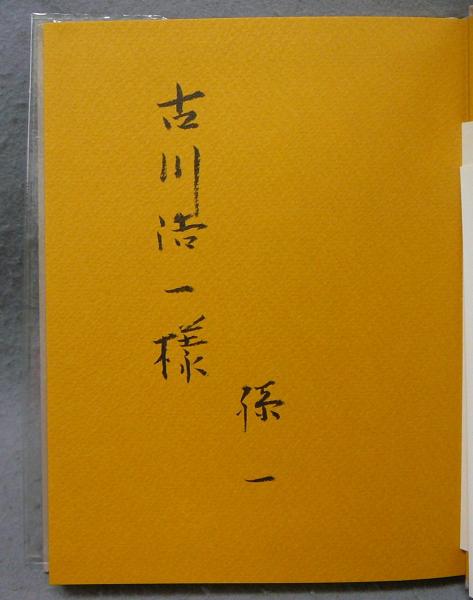 古川浩一様
孫一